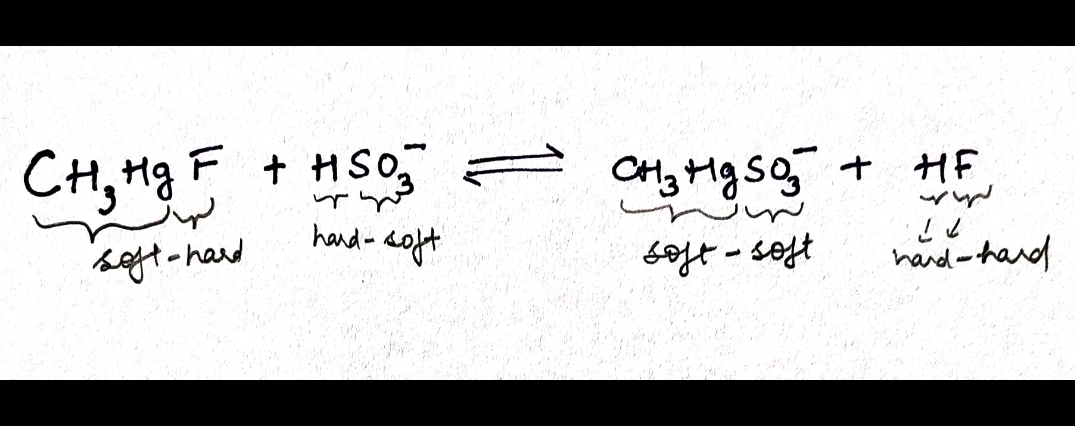 CH₃HgF + HSO₃⁻ ⇌ CH₃HgSO₃⁻ + HF
soft-hard hard-soft soft-soft hard-hard